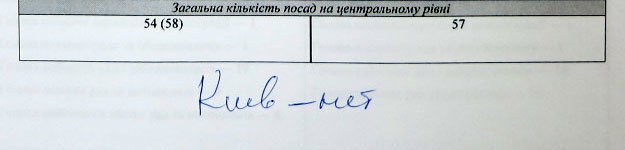 Загальна кількість посад на центральному рівні
54 (58) 57
Киев – нет